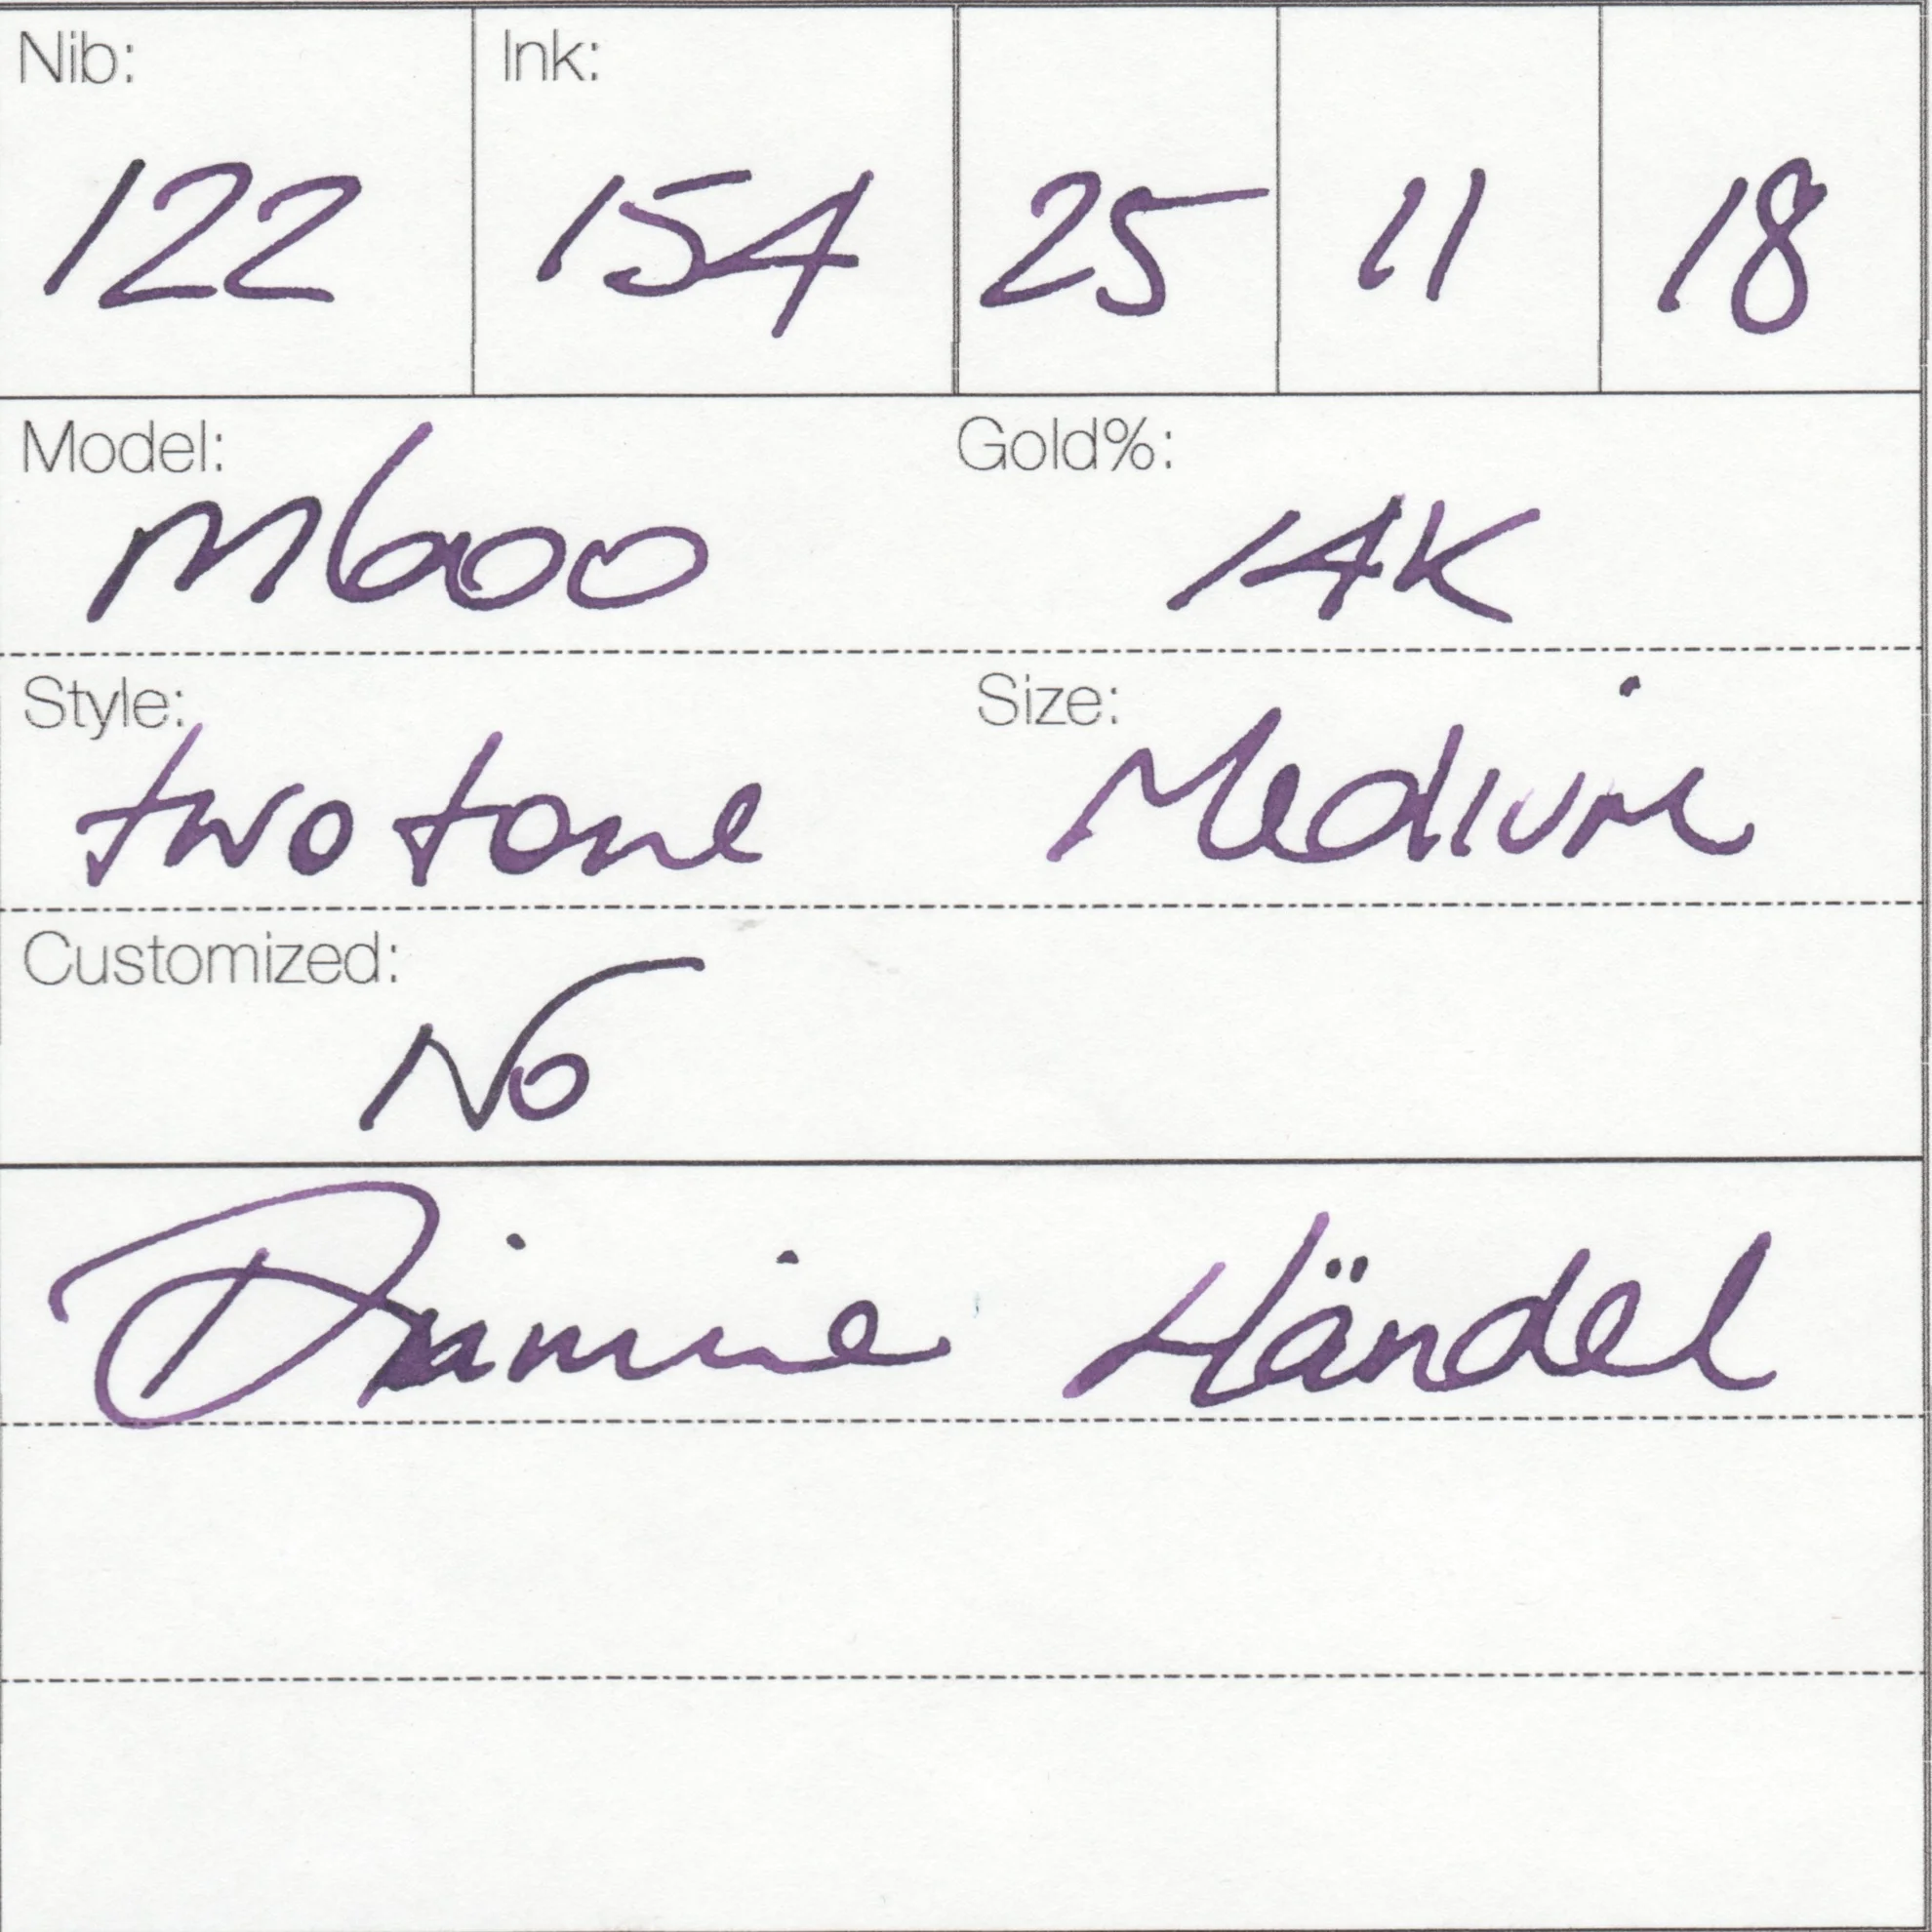 Nib: Ink:
122 154 25 11 18
Model: Gold%:
M600 14K
Style: Size:
two tone Medium
Customized:
No
Diamine Händel